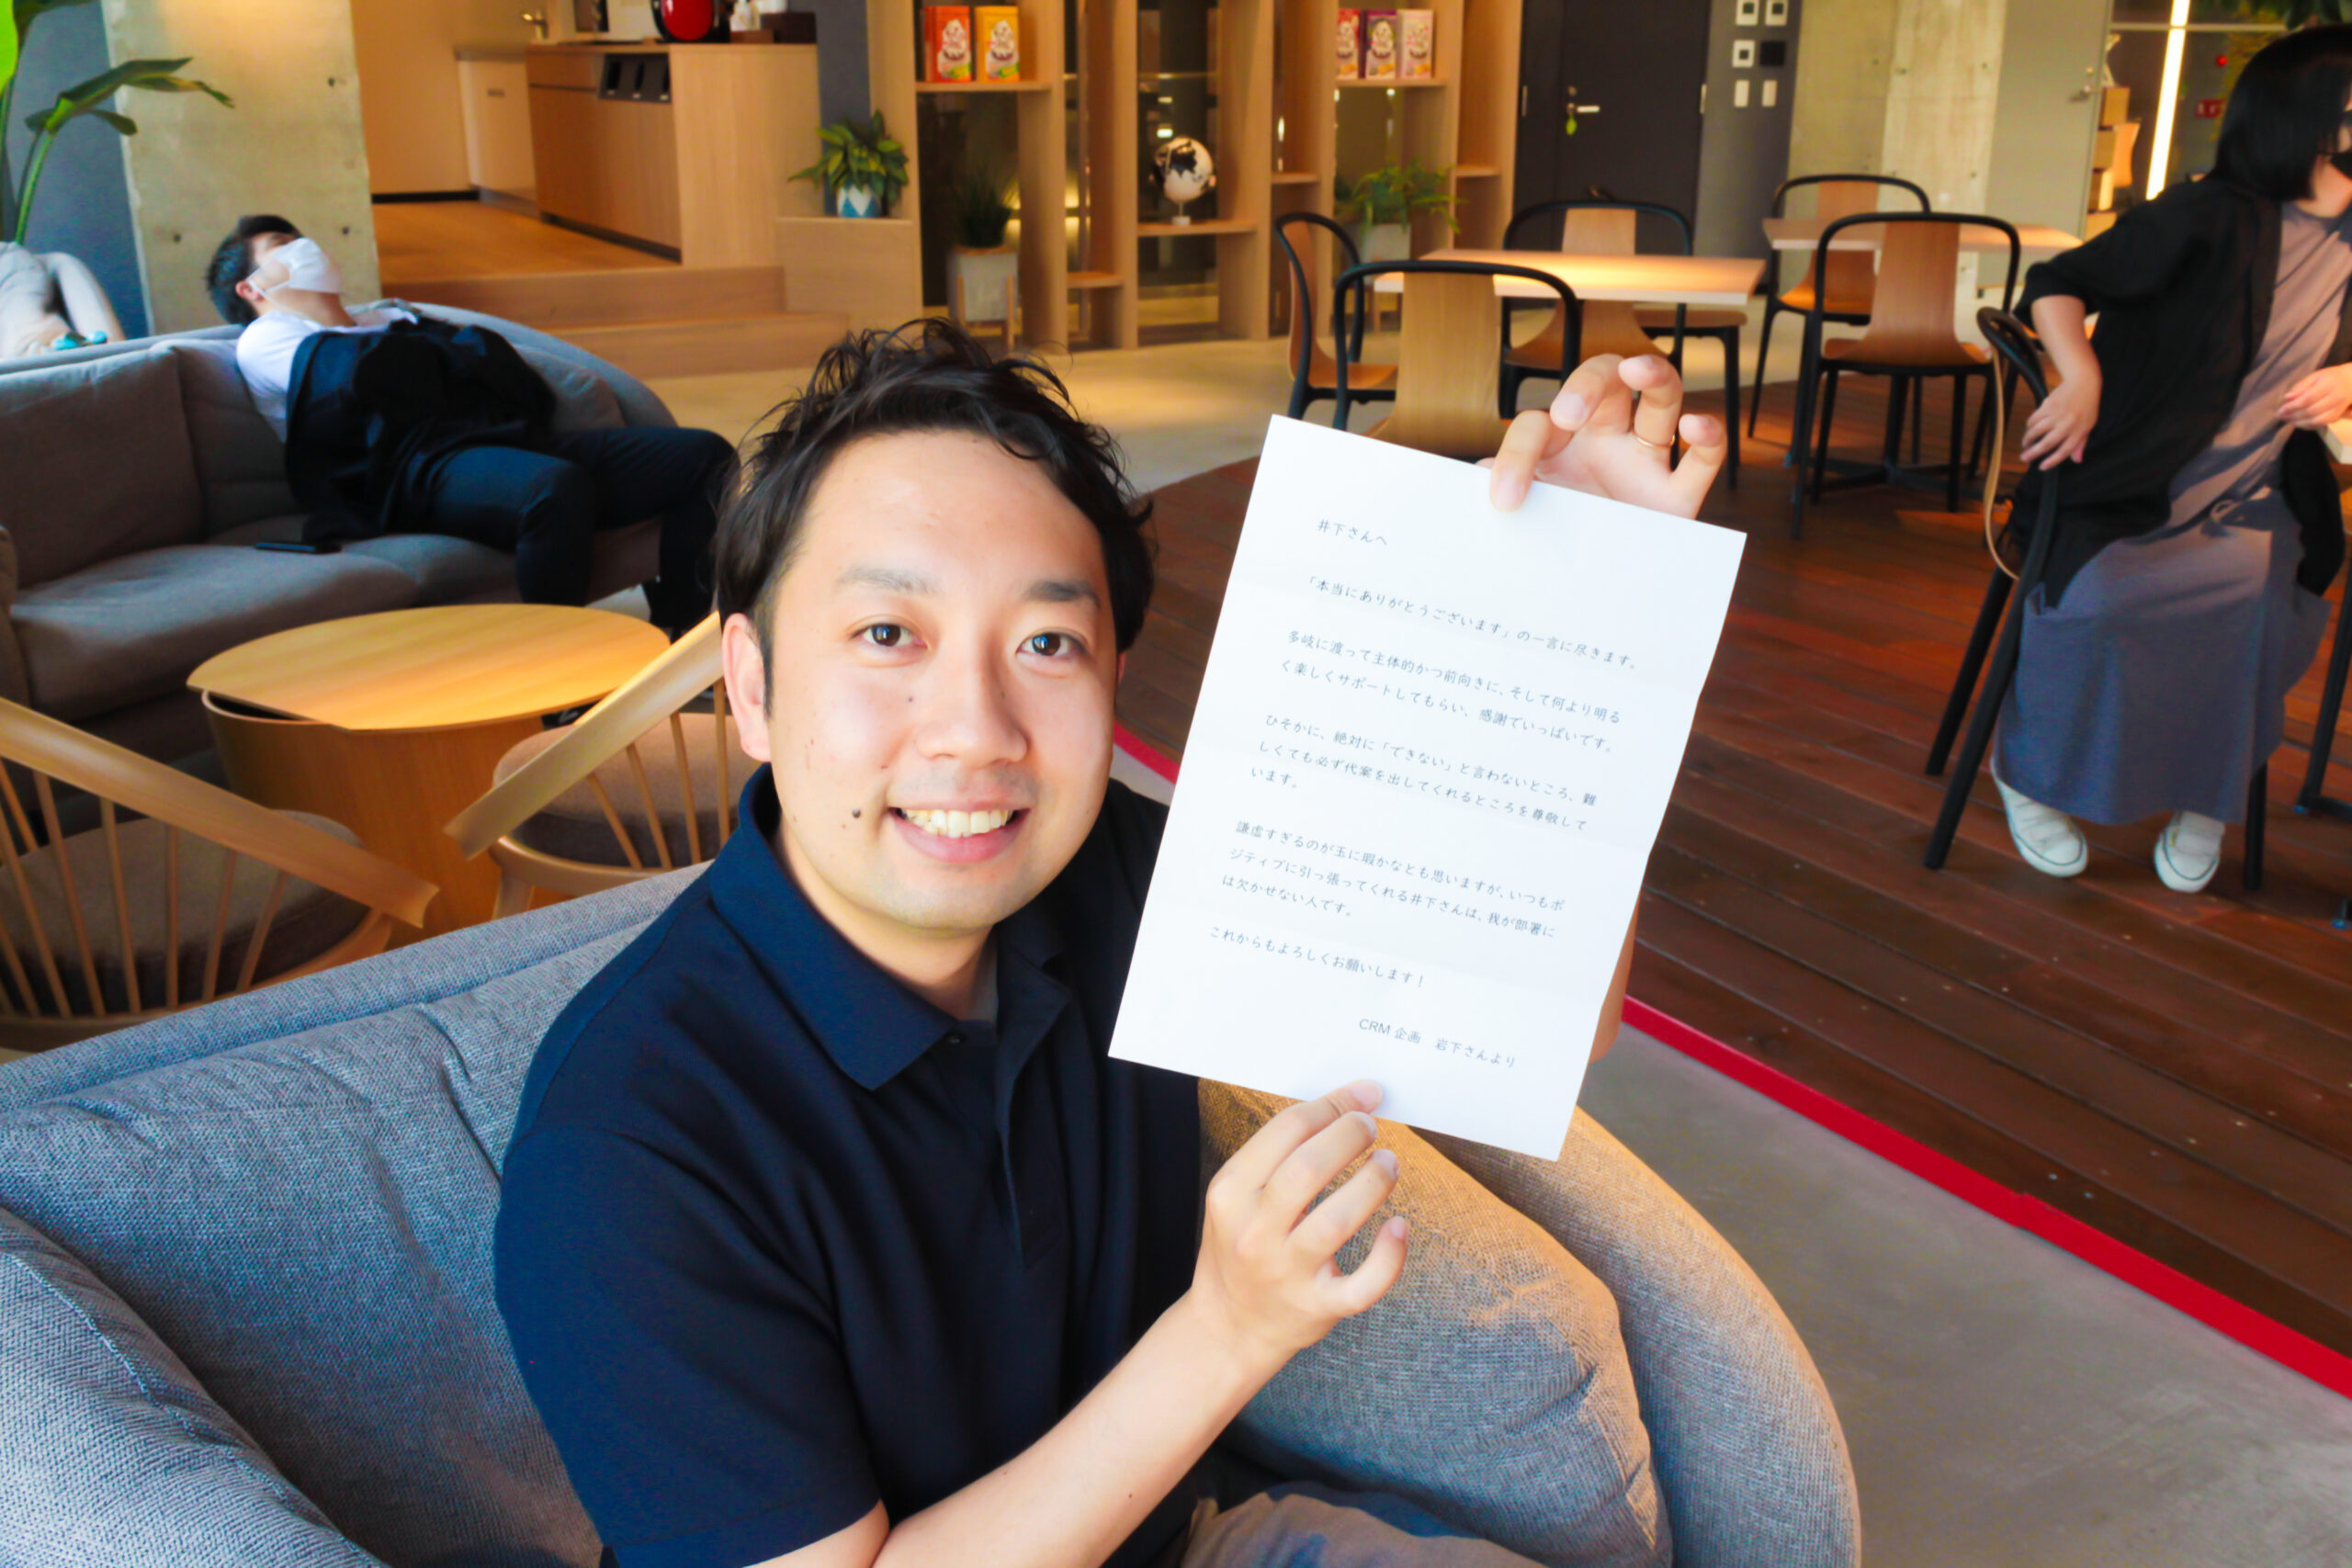 井下さんへ
「本当にありがとうございます」の一言に尽きます。
多岐に渡って主体的かつ前向きに、そして何より明る
く楽しくサポートしてもらい、感謝でいっぱいです。
ひそかに、絶対に「できない」と言わないところ、難
しくても必ず代案を出してくれるところを尊敬して
います。
謙虚すぎるのが玉に瑕かなとも思いますが、いつもポ
ジティブに引っ張ってくれる井下さんは、我が部署に
は欠かせない人です。
これからもよろしくお願いします！
CRM 企画　岩下さんより